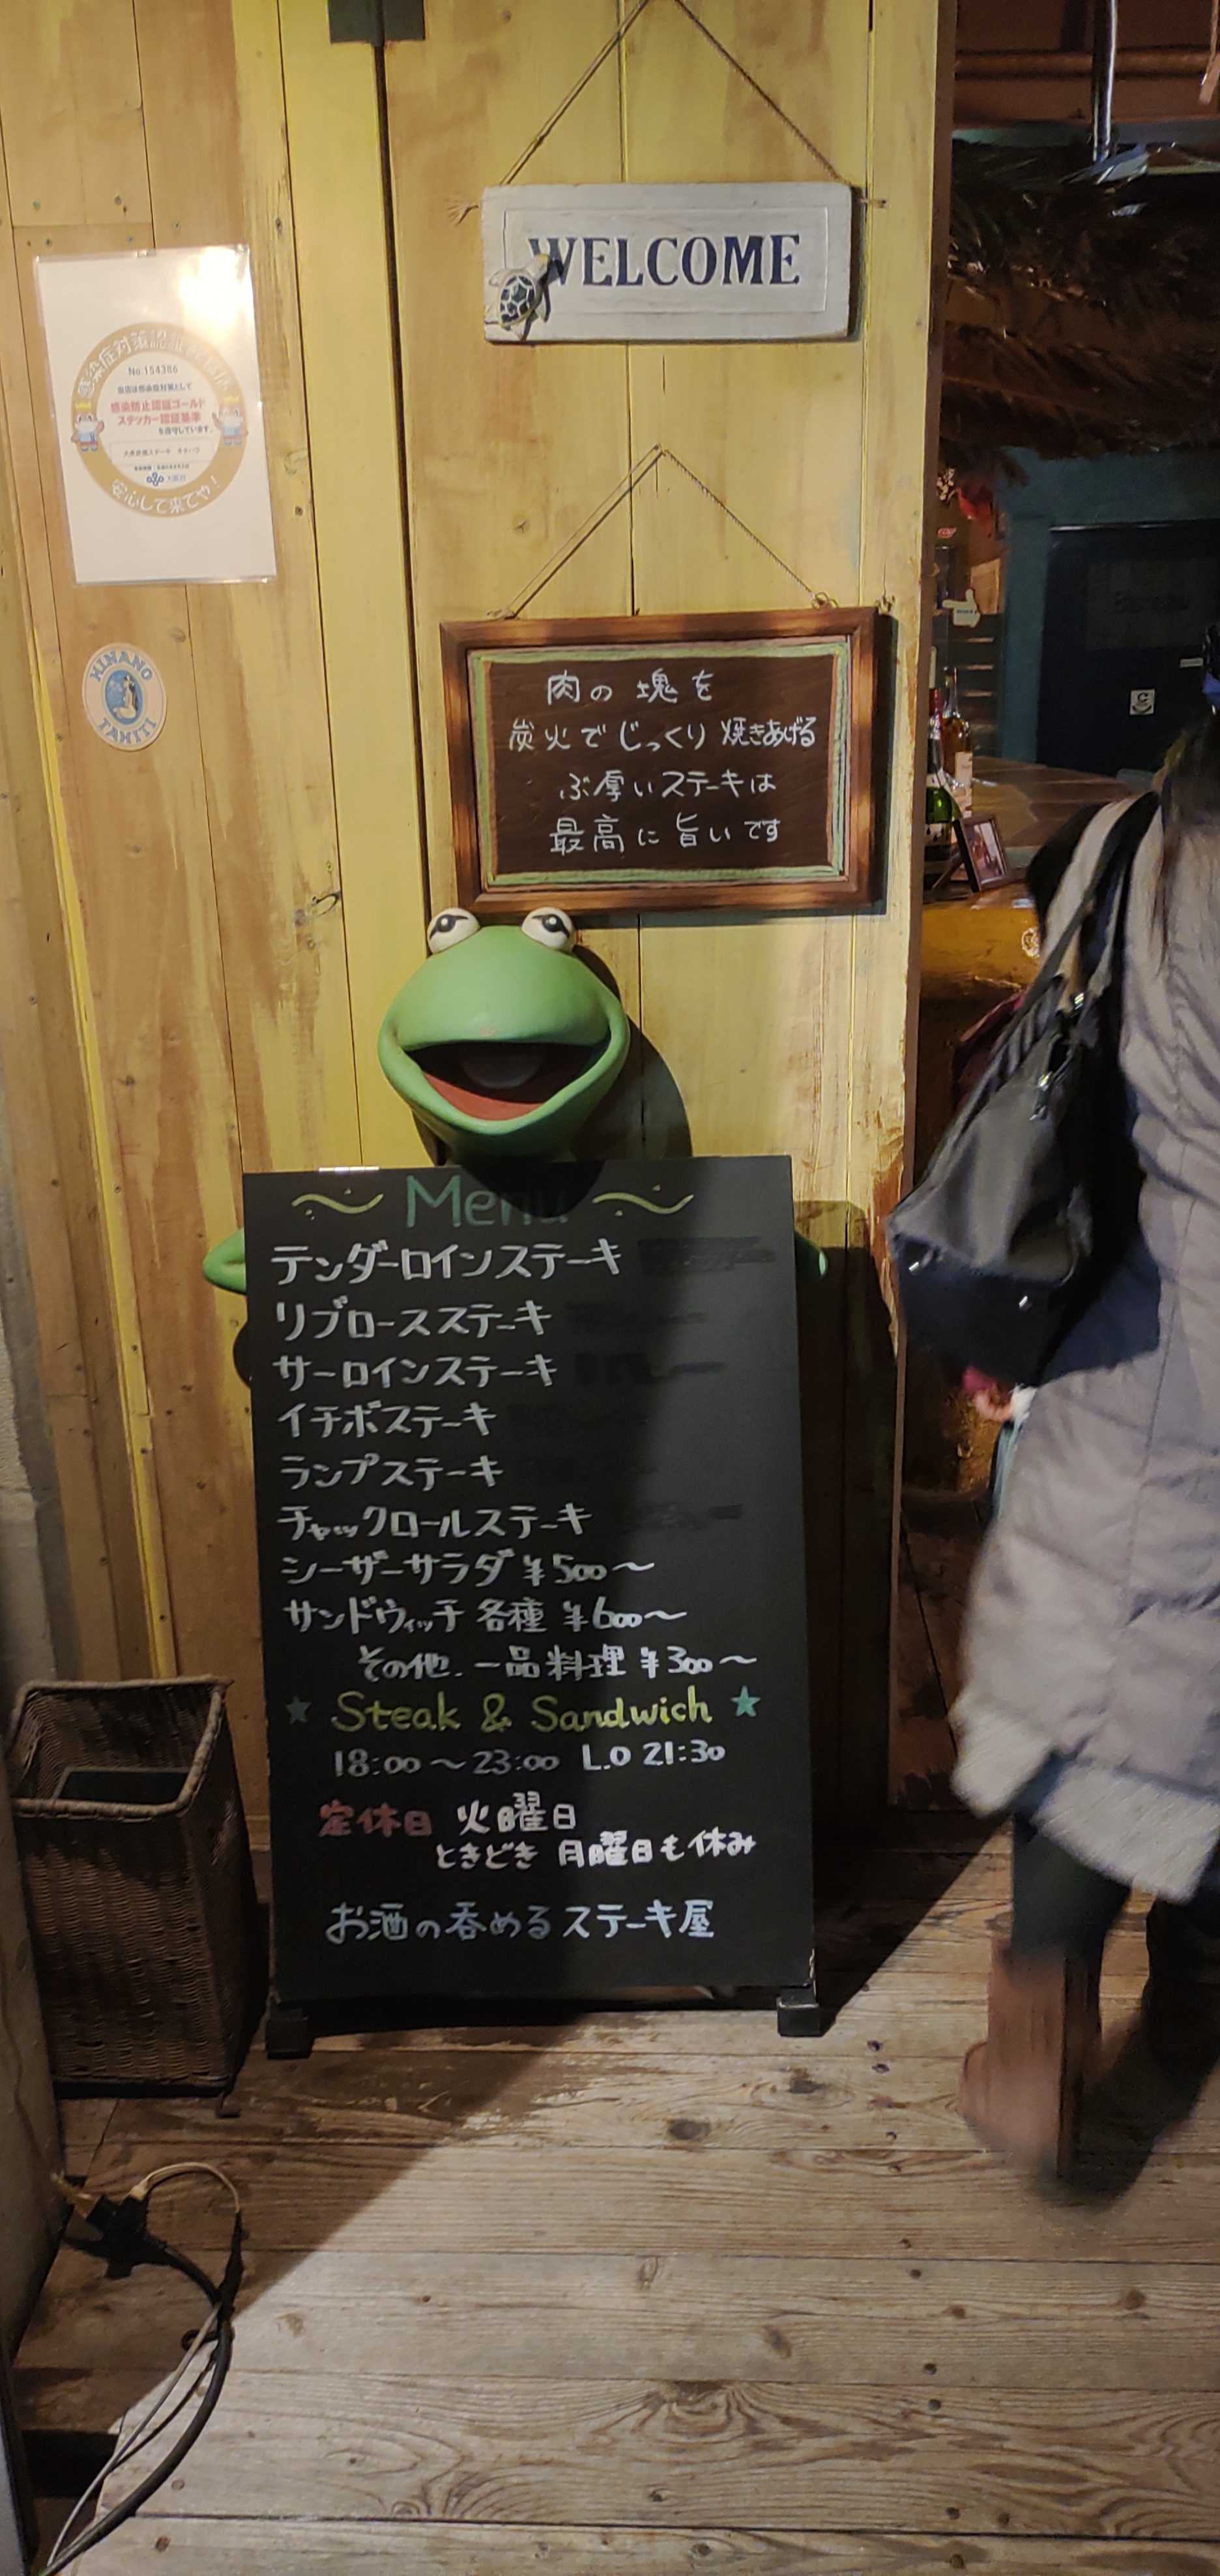 WELCOME
感染症対策認証
No.154386
当店は感染症対策として
感染防止認証ゴールド
ステッカー認証基準
を遵守しています。
大阪府
安心して来てや！
HINANO
TAHITI
肉の塊を
炭火でじっくり焼きあげる
ぶ厚いステーキは
最高に旨いです
～Menu～
テンダーロインステーキ
リブロースステーキ
サーロインステーキ
イチボステーキ
ランプステーキ
チャックロールステーキ
シーザーサラダ ¥500～
サンドウィッチ 各種 ¥600～
その他.一品料理 ¥300～
★ Steak & Sandwich ★
18:00～23:00 L.O 21:30
定休日 火曜日
ときどき 月曜日も休み
お酒の呑めるステーキ屋